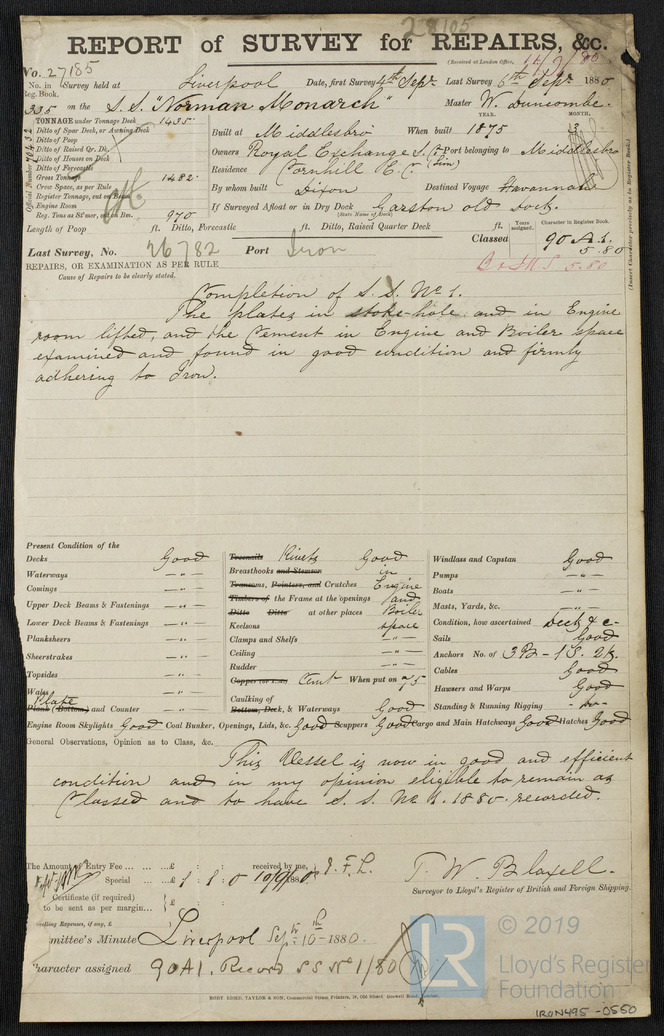 28105
REPORT of SURVEY for REPAIRS, &c.
(Received at London Office, 14/9/80
No. 27185
No. in Survey held at Liverpool Date, first Survey 4th Sept Last Survey 6th Sept 1880
Reg. Book.
335 on the S.S. "Norman Monarch" Master W. Duncombe.
TONNAGE under Tonnage Deck 1435
Ditto of Spar Deck, or Awning Deck
Ditto of Poop
Ditto of Raised Qr. Dk.
Ditto of Houses on Deck
Ditto of Forecastle
Gross Tonnage 1482
Crew Space, as per Rule
Register Tonnage, cut on Beam
Engine Room
Reg. Tons as St'mer, cut on Bm. 970
Official Number
YEAR. MONTH.
Built at Middlesbro When built 1875
Owners Royal Exchange S. Co. (Lim) Port belonging to Middlesbro
Residence Cornhill E.C.
By whom built Dixon Destined Voyage Havannah
If Surveyed Afloat or in Dry Dock Garston old Dock.
(State Name of Dock)
Length of Poop ft. Ditto, Forecastle ft. Ditto, Raised Quarter Deck ft.
Years assigned. Character in Register Book.
Classed 90 A.1.
5.80
5.80
(Insert Character precisely as in Register Book.)
Last Survey, No. 26782 Port Iron
REPAIRS, OR EXAMINATION AS PER RULE
Cause of Repairs to be clearly stated.
Completion of S.S. No 1.
The plates in stoke-hole and in Engine
room lifted, and the Cement in Engine and Boiler space
examined and found in good condition and firmly
adhering to Iron.
Present Condition of the
Decks Good
Waterways — " —
Comings — " —
Upper Deck Beams & Fastenings — " —
Lower Deck Beams & Fastenings — " —
Planksheers — " —
Sheerstrakes — " —
Topsides — " —
Wales
Plank Plate (Bottom) and Counter — " —
Treenails Rivets Good
Breasthooks and Stemson in
Transoms, Pointers, and Crutches Engine
Timbers of the Frame at the openings and
Ditto Ditto at other places Boiler
Keelsons space
Clamps and Shelfs — " —
Ceiling — " —
Rudder — " —
Copper Cemt When put on 75
Caulking of
Bottom, Deck, & Waterways Good
Windlass and Capstan Good
Pumps — " —
Boats — " —
Masts, Yards, &c. — " —
Condition, how ascertained Deck &c
Sails Good
Anchors No. of 3 B - 1 S. 2 K.
Cables Good
Hawsers and Warps Good
Standing & Running Rigging — " —
Engine Room Skylights Good Coal Bunker, Openings, Lids, &c. Good Scuppers Good Cargo and Main Hatchways Good Hatches Good
General Observations, Opinion as to Class, &c.
This Vessel is now in good and efficient
condition and in my opinion eligible to remain as
Classed and to have S.S. No 1. 1880. recorded.
The Amount of Entry Fee ... ... £ : : received by me,
Special ... ... £ 1 : 1 : 0 10/9/1880 J.F.L.
Certificate (if required)
to be sent as per margin...
Travelling Expenses, if any, £
T. W. Blaxell.
Surveyor to Lloyd's Register of British and Foreign Shipping.
Committee's Minute Liverpool Sept 10th 1880.
Character assigned 90A1. Record SS No 1/80
LR
© 2019
Lloyd's Register
Foundation
IRON495-0550